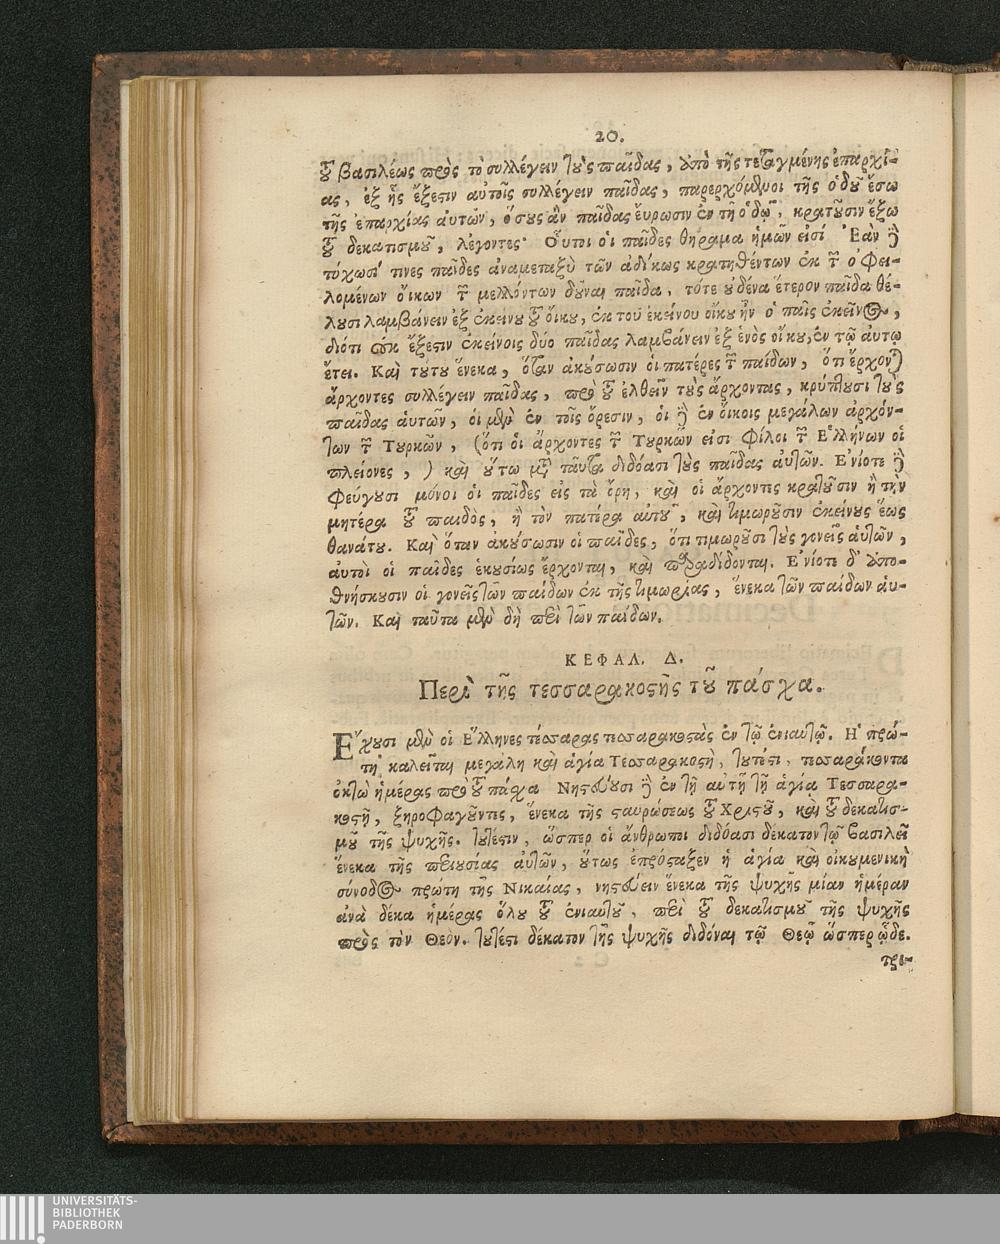 20.
τοῦ βασιλέως πρὸς τὸ συλλέγειν τοὺς παῖδας, ἀπὸ τῆς τεταγμένης ἐπαρχί-
ας, ἐξ ἧς ἔξεστιν αὐτοῖς συλλέγειν παῖδας, παρερχόμενοι τῆς ὁδοῦ ἔσω
τῆς ἐπαρχίας αὐτῶν, ὅσους ἂν παῖδας εὕρωσιν ἐν τῇ ὁδῷ, κρατοῦσιν ἔξω
τοῦ δεκατισμοῦ, λέγοντες· Οὗτοι οἱ παῖδες θήραμα ἡμῶν εἰσί. Ἐὰν δὲ
τύχωσί τινες παῖδες ἀναμεταξὺ τῶν ἀδίκως κρατηθέντων ἐκ τῶν ὀφει-
λομένων οἴκων τῶν μελλόντων δοῦναι παῖδα, τότε οὐδένα ἕτερον παῖδα θέ-
λουσι λαμβάνειν ἐξ ἐκείνου τοῦ οἴκου, ἐκ τοῦ ἐκείνου οἴκου ἦν ὁ παῖς ἐκεῖνος,
διότι οὐκ ἔξεστιν ἐκείνοις δύο παῖδας λαμβάνειν ἐξ ἑνὸς οἴκου, ἐν τῷ αὐτῷ
ἔτει. Καὶ τούτου ἕνεκα, ὅταν ἀκούσωσιν οἱ πατέρες τῶν παίδων, ὅτι ἔρχονται
ἄρχοντες συλλέγειν παῖδας, πρὸ τοῦ ἐλθεῖν τοὺς ἄρχοντας, κρύπτουσι τοὺς
παῖδας αὑτῶν, οἱ μὲν ἐν τοῖς ὄρεσιν, οἱ δὲ ἐν οἴκοις μεγάλων ἀρχόν-
των τῶν Τυρκῶν, (ὅτι οἱ ἄρχοντες τῶν Τυρκῶν εἰσι φίλοι τῶν Ἑλλήνων οἱ
πλείονες,) καὶ οὕτω μετὰ ταῦτα διδόασι τοὺς παῖδας αὐτῶν. Ἐνίοτε δὲ
φεύγουσι μόνοι οἱ παῖδες εἰς τὰ ὄρη, καὶ οἱ ἄρχοντες κρατοῦσιν ἢ τὴν
μητέρα τοῦ παιδὸς, ἢ τὸν πατέρα αὐτοῦ, καὶ τιμωροῦσιν ἐκείνους ἕως
θανάτου. Καὶ ὅταν ἀκούσωσιν οἱ παῖδες, ὅτι τιμωροῦσι τοὺς γονεῖς αὐτῶν,
αὐτοὶ οἱ παῖδες ἑκουσίως ἔρχονται, καὶ παραδίδονται. Ἐνίοτε δ' ἀπο-
θνήσκουσιν οἱ γονεῖς τῶν παίδων ἐκ τῆς τιμωρίας, ἕνεκα τῶν παίδων αὑ-
τῶν. Καὶ ταῦτα μὲν δὴ περὶ τῶν παίδων.
ΚΕΦΑΛ. Δ.
Περὶ τῆς τεσσαρακοστῆς τοῦ πάσχα.
Ἔχουσι μὲν οἱ Ἕλληνες τέσσαρας τεσσαρακοστὰς ἐν τῷ ἐνιαυτῷ. Ἡ πρώ-
τη καλεῖται μεγάλη καὶ ἁγία Τεσσαρακοστὴ, τουτέστι, τεσσαράκοντα
ὀκτὼ ἡμέρας πρὸ τοῦ πάσχα Νηστεύουσι δὲ ἐν τῇ αὐτῇ τῇ ἁγίᾳ Τεσσαρα-
κοστῇ, ξηροφαγοῦντες, ἕνεκα τῆς σταυρώσεως τοῦ Χριστοῦ, καὶ τοῦ δεκατισ-
μοῦ τῆς ψυχῆς. τουτέστιν, ὥσπερ οἱ ἄνθρωποι διδόασι δέκατον τῷ βασιλεῖ
ἕνεκα τῆς περιουσίας αὐτῶν, οὕτως ἐπρόσταξεν ἡ ἁγία καὶ οἰκουμενικὴ
σύνοδος πρώτη τῆς Νικαίας, νηστεύειν ἕνεκα τῆς ψυχῆς μίαν ἡμέραν
ἀνὰ δέκα ἡμέρας ὅλου τοῦ ἐνιαυτοῦ, περὶ τοῦ δεκατισμοῦ τῆς ψυχῆς
πρὸς τὸν Θεὸν. τουτέστι δέκατον τῆς ψυχῆς διδόναι τῷ Θεῷ ὥσπερ ᾧδε.
τρι-
UNIVERSITÄTS-
BIBLIOTHEK
PADERBORN